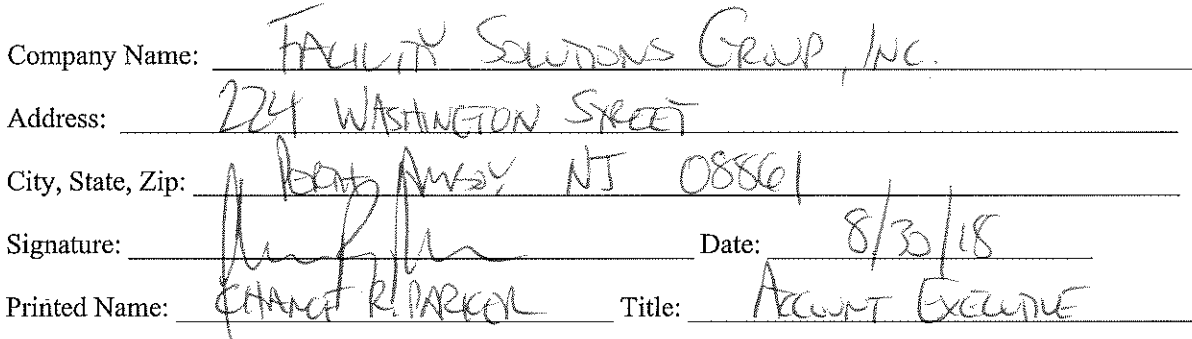 Company Name: FACILITY SOLUTIONS GROUP, INC.
Address: 224 WASHINGTON STREET
City, State, Zip: PERTH AMBOY, NJ 08861
Signature: Date: 8/30/18
Printed Name: R. PARKER Title: ACCOUNT EXECUTIVE